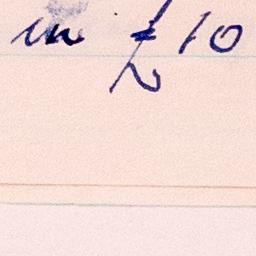 in £10